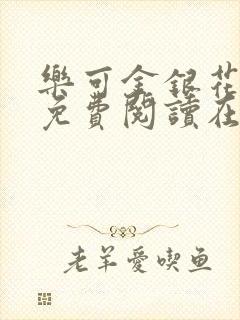 樂可金銀花
免費閱讀在
老羊愛喫鱼